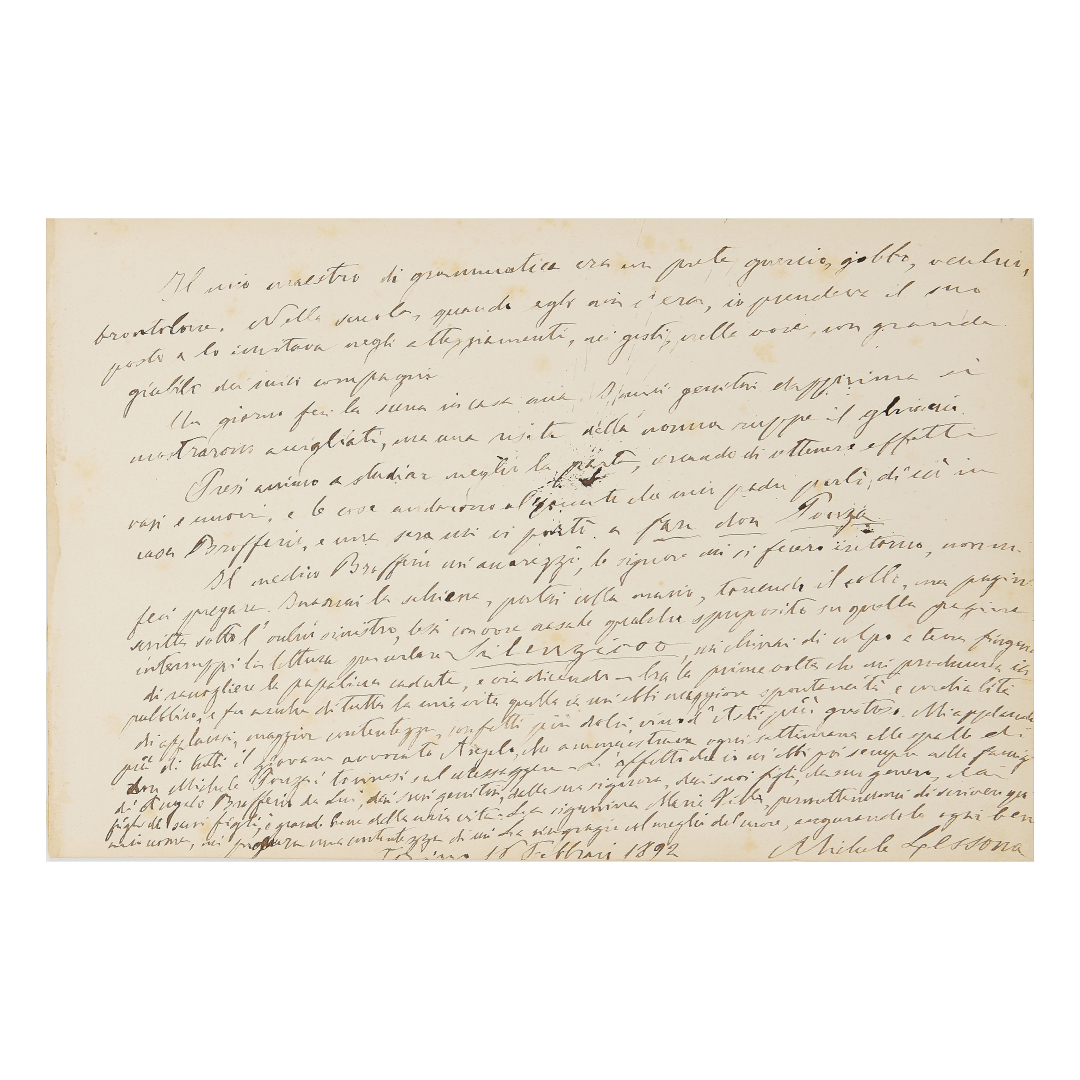 Il mio maestro di grammatica era un prete guercio, gobbo,
brontolone. Nella scuola, quando egli non c'era, io prendeva il suo
posto e lo imitava negli atteggiamenti, nei gesti, nella voce, con grande
giubilo dei miei compagni.
Un giorno feci la scena in casa mia. I miei genitori dapprima si
mostrarono accigliati, ma una risata della nonna ruppe il ghiaccio.
Presi animo a studiar meglio la parte, cercando di ottenere effetti
vari e nuovi, e le cose andarono al punto che mio padre parlò di ciò in
casa Brofferio, e una sera mi ci portò a fare don Ponza
Il medico Brofferio mi accarezzò, le signore mi si fecero intorno, non mi
feci pregare. Incurvai la schiena, portai colla mano, torcendo il collo, una pagina
scritta sotto l'occhio sinistro, lessi con voce nasale qualche sproposito su quella pagina
interruppi la lettura per urlare Silenzioo, mi chinai di colpo a terra fingendo
di raccogliere la papalina caduta, e via dicendo. Era la prima volta che mi produceva in
pubblico, e fu anche di tutta la mia vita quella in cui ebbi maggiore spontaneità e cordialità
di applausi, maggior contentezza, confetti più dolci, vino d'Asti più gustoso. Mi applaudì
più di tutti il giovane avvocato Angelo, che ammaestrava ogni settimana alle spalle di
don Michele Ponza i torinesi sul Messaggere. L'affetto che io m'ebbi poi sempre nella famiglia
di Angelo Brofferio da Lui, dai suoi genitori, dalla sua signora, dai suoi figli, da suo genero, dai
figli dei suoi figli, è grande bene della mia vita. La signorina Maria Villa, permettendomi di scrivere qui
mio nome, mi procura una contentezza di cui La ringrazio col meglio del cuore, augurandole ogni bene
Torino 15 Febbrai 1892 Michele Lessona